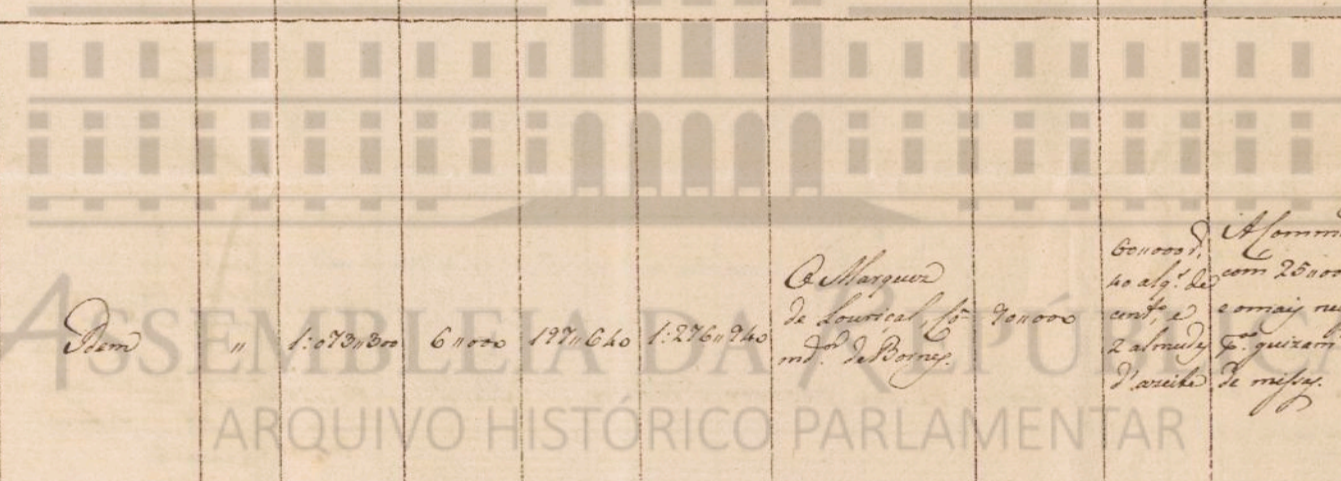 Idem
"
1:073"300
6"000
197"640
1:276"940
O Marquez
de Louriçal, Co-
md.or de Bornes.
70"000
60"000 r.s
40 alq.s de
cent.o, e
2 almudes
d'azeite
A Comm
com 25"00
e o mais ne
p.a guizam
de missas.
ASSEMBLEIA DA REPÚBLIC
ARQUIVO HISTÓRICO PARLAMENTAR